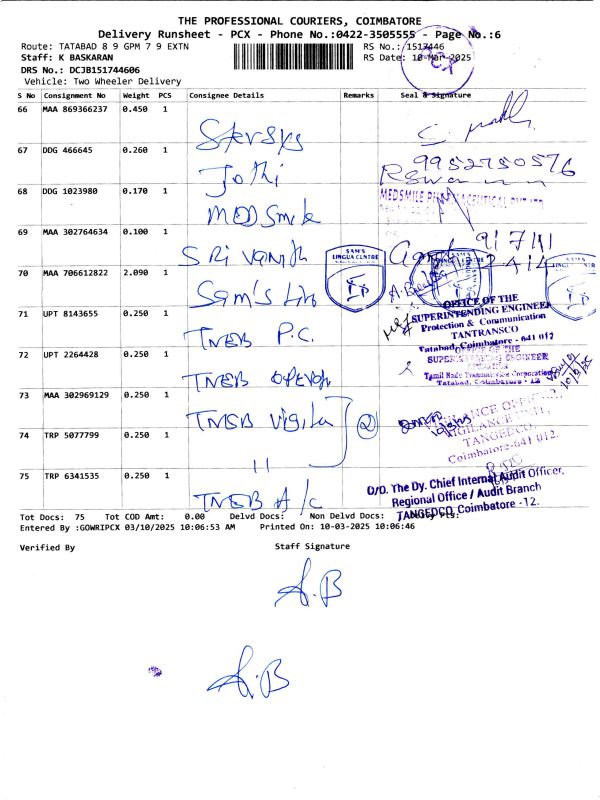 THE PROFESSIONAL COURIERS, COIMBATORE
Delivery Runsheet - PCX - Phone No.:0422-3505555 - Page No.:6
Route: TATABAD 8 9 GPM 7 9 EXTN
RS No.: 1517446
Staff: K BASKARAN
RS Date: 10-Mar-2025
DRS No.: DCJB151744606
Vehicle: Two Wheeler Delivery
S No Consignment No Weight PCS Consignee Details Remarks Seal & Signature
66 MAA 869366237 0.450 1
67 DDG 466645 0.260 1 Jothi 9952750576
68 DDG 1023980 0.170 1 MED Smile
MEDSMILE
69 MAA 302764634 0.100 1 SRi
70 MAA 706612822 2.090 1 Sam's
SAM'S
LINGUA CENTRE
71 UPT 8143655 0.250 1 TNEB P.C.
OFFICE OF THE
SUPERINTENDING ENGINEER
Protection & Communication
TANTRANSCO
Tatabad, Coimbatore - 641 012
72 UPT 2264428 0.250 1 TNEB
OFFICE OF THE
SUPERINTENDING ENGINEER
Tamil Nadu Transmission Corporation
Tatabad, Coimbatore - 12
73 MAA 302969129 0.250 1 TNEB Vigila 2
VIGILANCE UNIT,
TANGEDCO,
Coimbatore-641 012.
74 TRP 5077799 0.250 1 11
75 TRP 6341535 0.250 1 TNEB A/c
O/O. The Dy. Chief Internal Audit Officer,
Regional Office / Audit Branch
TANGEDCO, Coimbatore -12.
Tot Docs: 75 Tot COD Amt: 0.00 Delvd Docs: Non Delvd Docs:
Entered By :GOWRIPCX 03/10/2025 10:06:53 AM Printed On: 10-03-2025 10:06:46
Verified By Staff Signature
A.B
A.B